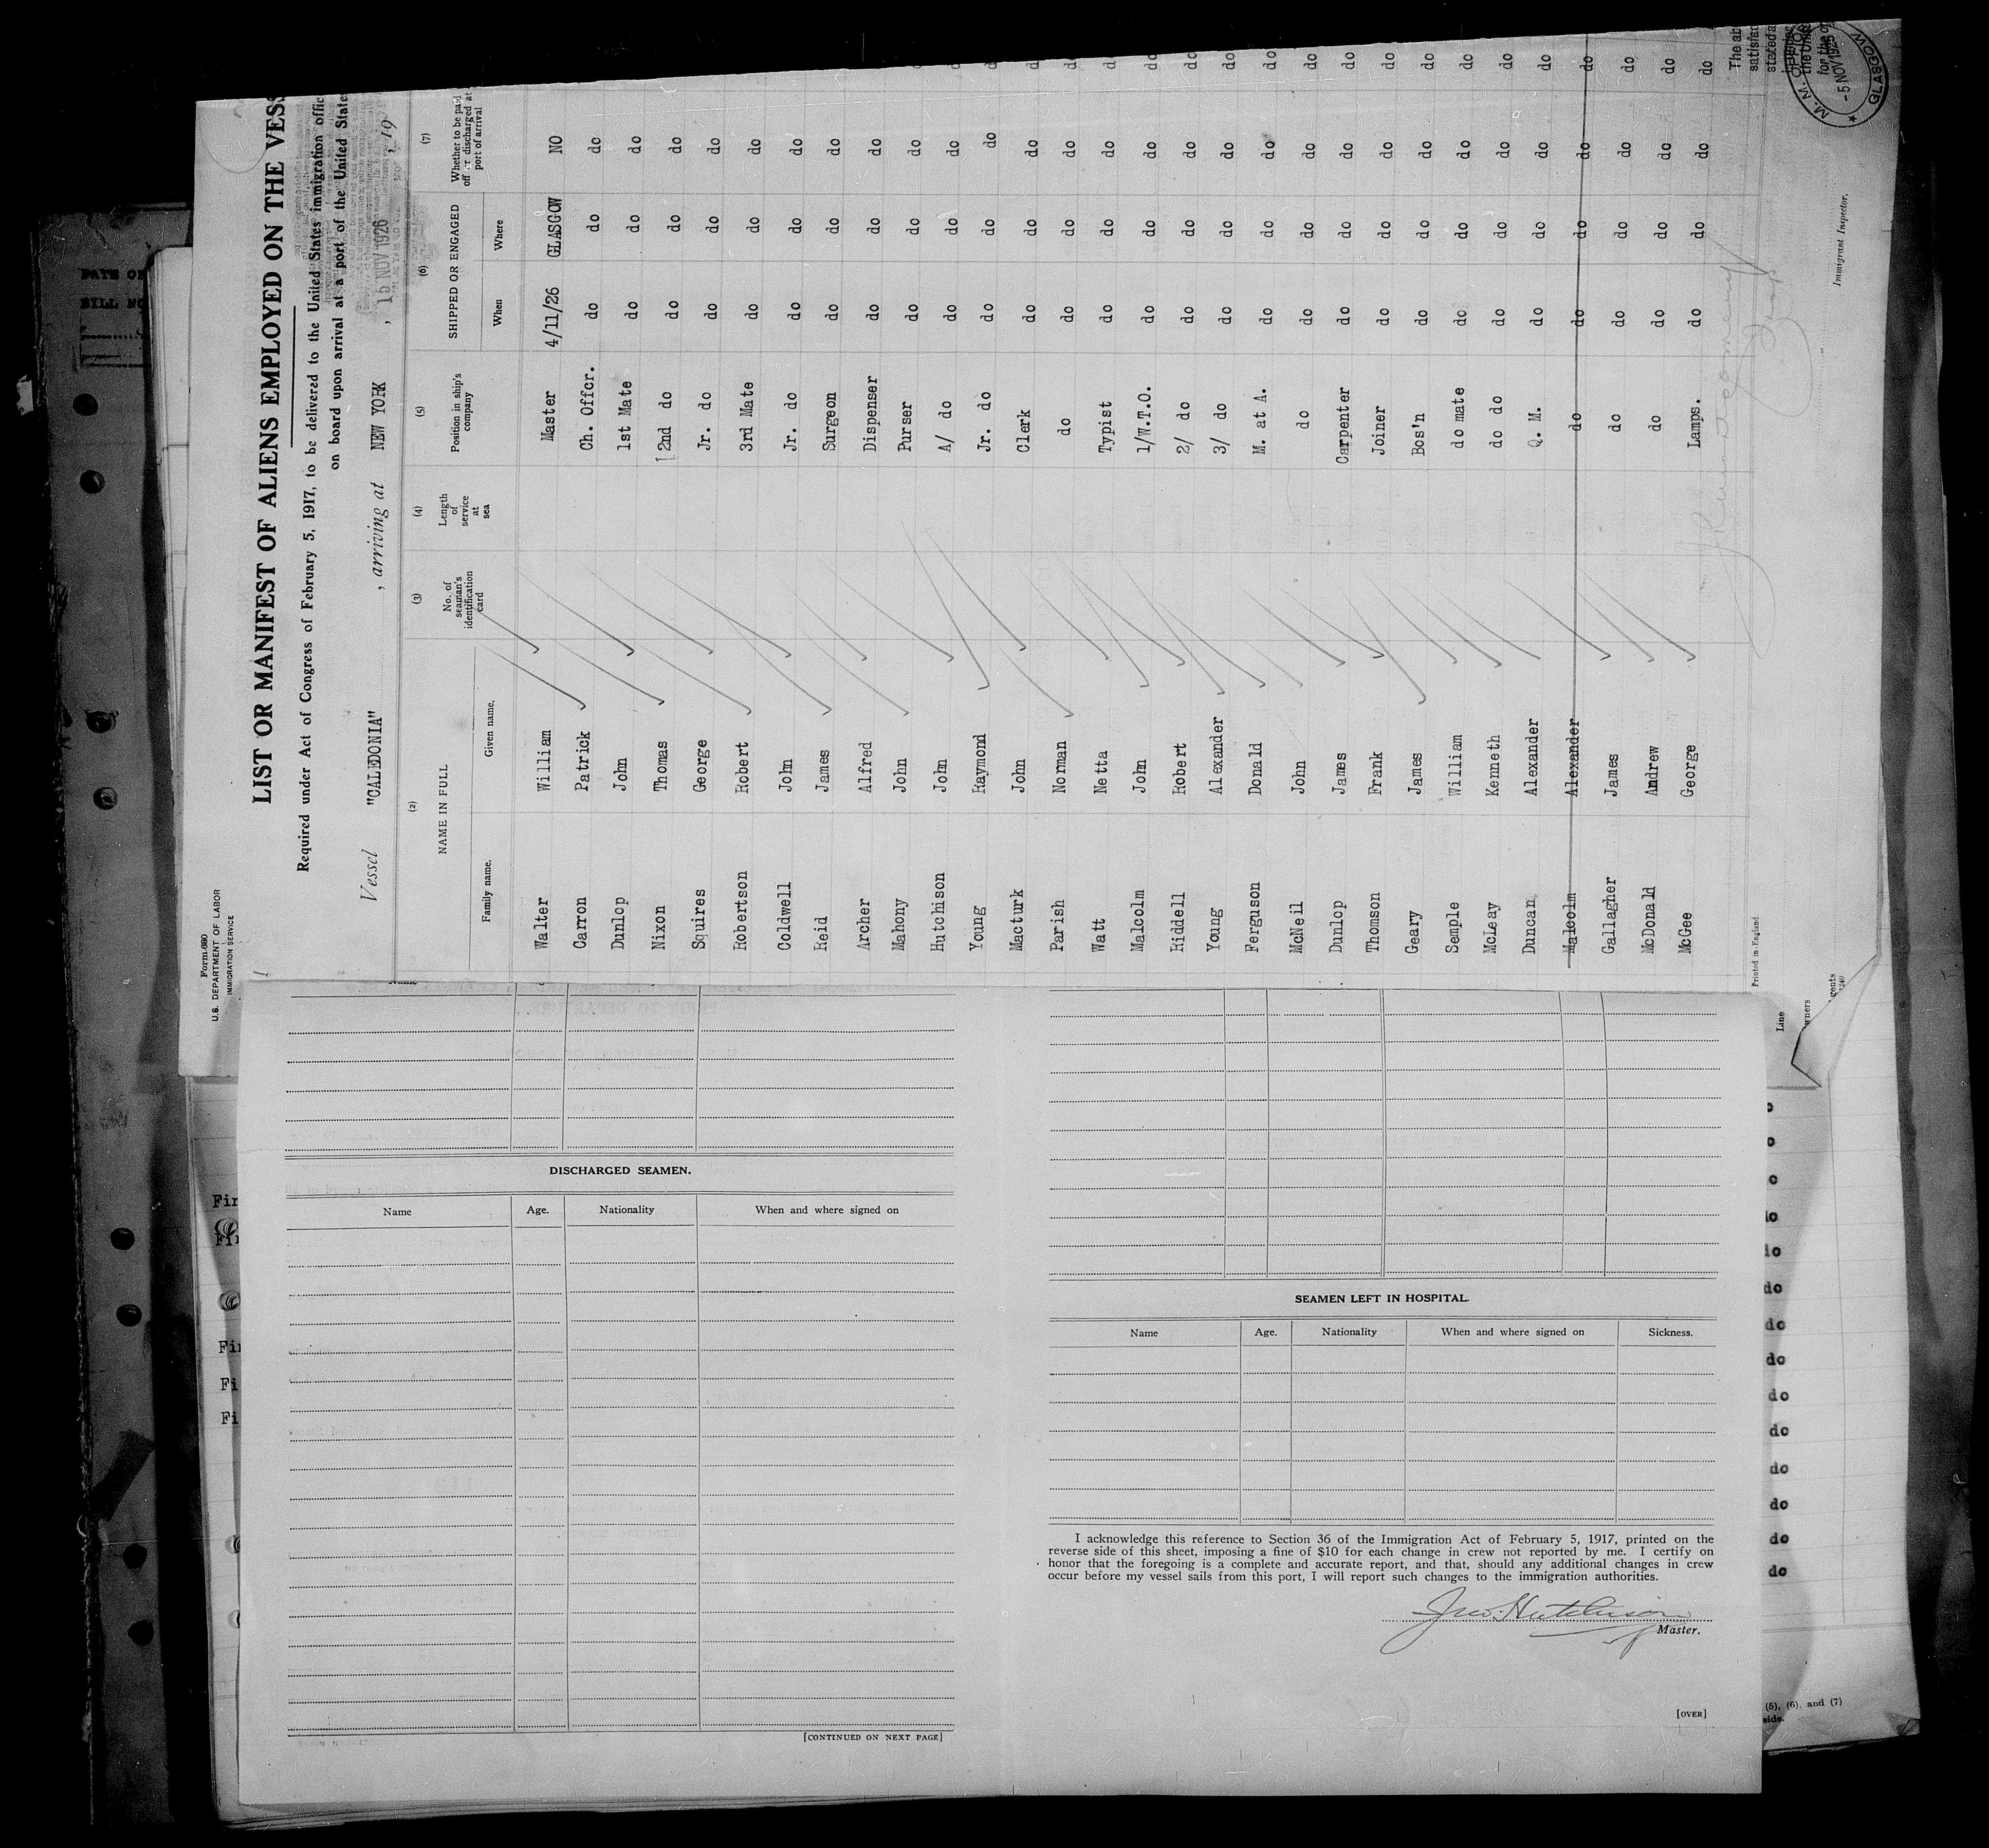 Form 680
U.S. DEPARTMENT OF LABOR
IMMIGRATION SERVICE
LIST OR MANIFEST OF ALIENS EMPLOYED ON THE VESS
Required under Act of Congress of February 5, 1917, to be delivered to the United States immigration offic
on board upon arrival at a port of the United States
Vessel "CALEDONIA" , arriving at NEW YORK , 15 NOV 1926 , 19
(2) (3) (4) (5) (6) (7)
NAME IN FULL No. of seaman's identification card Length of service at sea Position in ship's company SHIPPED OR ENGAGED Whether to be paid off or discharged at port of arrival
Family name. Given name. When Where
Walter William Master 4/11/26 GLASGOW NO
Carron Patrick Ch. Offcr. do do do do
Dunlop John 1st Mate do do do do
Nixon Thomas 2nd do do do do do
Squires George Jr. do do do do do
Robertson Robert 3rd Mate do do do do
Coldwell John Jr. do do do do do
Reid James Surgeon do do do do
Archer Alfred Dispenser do do do do
Mahony John Purser do do do do
Hutchison John A/ do do do do do
Young Raymond Jr. do do do do do
Macturk John Clerk do do do do
Parish Norman do do do do do
Watt Netta Typist do do do do
Malcolm John 1/W.T.O. do do do do
Riddell Robert 2/ do do do do do
Young Alexander 3/ do do do do do
Ferguson Donald M. at A. do do do do
McNeil John do do do do do
Dunlop James Carpenter do do do do
Thomson Frank Joiner do do do do
Geary James Bos'n do do do do
Semple William do mate do do do do
McLay Kenneth do do do do do do
Duncan Alexander Q. M. do do do do
Malcolm Alexander do do do do do
Gallagher James do do do do do
McDonald Andrew do do do do do
McGee George Lamps. do do do do
Printed in England.
Immigrant Inspector.
Line
wners
gents
The ab
satisfac
stated a
M. M. OFFICE
5 NOV 1926
GLASGOW
DATE OF
BILL NO
DISCHARGED SEAMEN.
Name Age. Nationality When and where signed on
[CONTINUED ON NEXT PAGE]
SEAMEN LEFT IN HOSPITAL.
Name Age. Nationality When and where signed on Sickness.
I acknowledge this reference to Section 36 of the Immigration Act of February 5, 1917, printed on the
reverse side of this sheet, imposing a fine of $10 for each change in crew not reported by me. I certify on
honor that the foregoing is a complete and accurate report, and that, should any additional changes in crew
occur before my vessel sails from this port, I will report such changes to the immigration authorities.
Jno. Hutchison
Master.
[OVER]
Fir
Fir
Fir
Fi
Fi
do
do
do
do
do
do
do
do
do
(5), (6), and (7)
side.